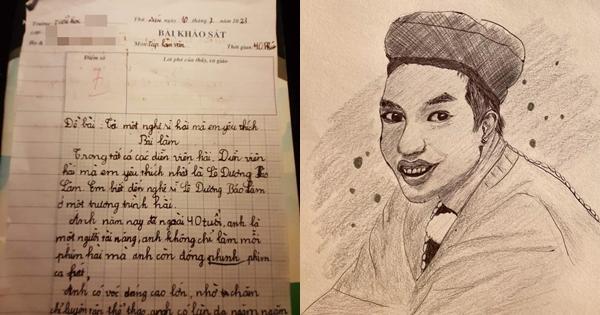 Trường: Tiểu học
Thứ Năm ngày 10 tháng 2 năm 2023
Lớp:
Họ &
BÀI KHẢO SÁT
Môn: tập làm văn
Thời gian: 40 Phút
Điểm số
Lời phê của thầy, cô giáo
7
Đề bài: Tả một nghệ sĩ hài mà em yêu thích
Bài làm
Trong tất cả các diễn viên hài. Diễn viên
hài mà em yêu thích nhất là Lê Dương Bảo
Lâm. Em biết đến nghệ sĩ Lê Dương Bảo Lâm
ở một trương trình hài.
Anh năm nay đã ngoài 40 tuổi, anh là
một người tài năng, anh không chỉ làm mỗi
phim hài mà anh còn đóng phinh phim
ca hát,
Anh có vóc dáng cao lớn, nhờ chăm
chỉ luyện tập thể thao, anh có làn da ngăm ngăm